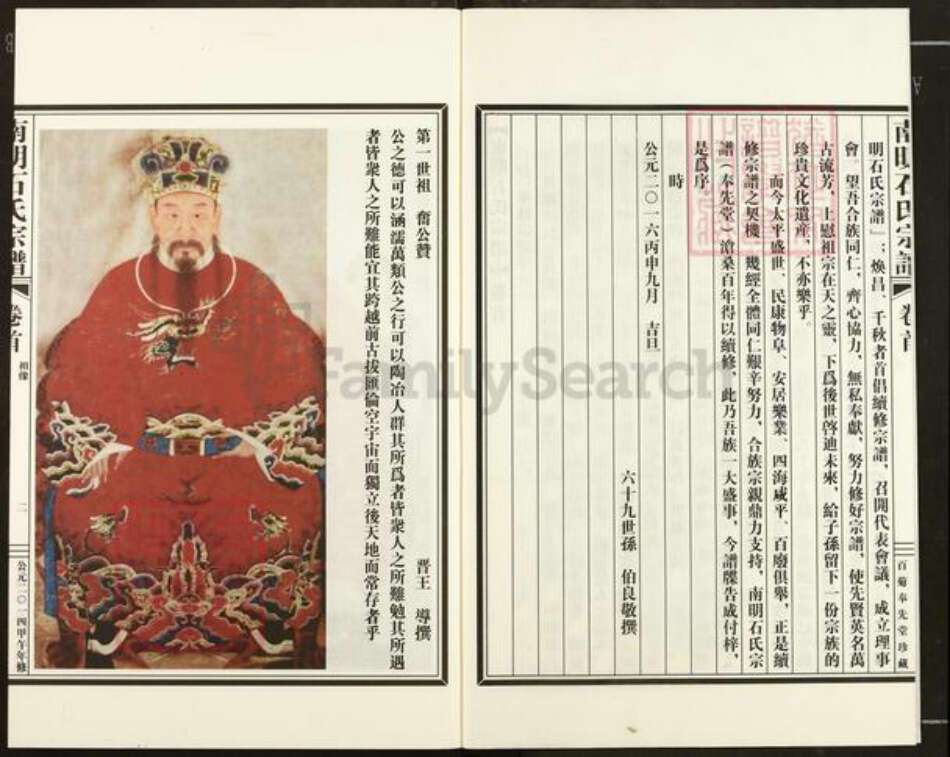 南明石氏宗譜
卷首
百菊奉先堂珍藏
明石氏宗譜』；煥昌、千秋者首倡續修宗譜，召開代表會議，成立理事
會。望吾合族同仁，齊心協力，無私奉獻，努力修好宗譜，使先賢英名萬
古流芳，上慰祖宗在天之靈，下爲後世啓迪未來，給子孫留下一份宗族的
珍貴文化遺産，不亦樂乎。
而今太平盛世、民康物阜、安居樂業、四海咸平、百廢俱舉，正是續
修宗譜之契機，幾經全體同仁艱辛努力，合族宗親鼎力支持，南明石氏宗
譜（奉先堂）滄桑百年得以續修，此乃吾族一大盛事，今譜牒告成付梓，
是爲序
時
公元二〇一六丙申九月 吉旦
六十九世孫 伯良敬撰
第一世祖 奮公贊
晋王 導撰
公之德可以涵濡萬類公之行可以陶冶人群其所爲者皆衆人之所難勉其所遇
者皆衆人之所難能宜其跨越前古拔匯倫空宇宙而獨立後天地而常存者乎
南明石氏宗譜
卷首
相像
二
公元二〇一四甲午年修
FamilySearch